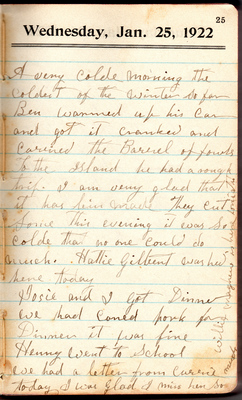 25
Wednesday, Jan. 25, 1922
A very colde morning the
coldest of the winter so far
Ben warmed up his car
and got it cranked and
carried the Barrel of fowls
to the Island he had a rough
trip. I am very glad that
it has bin made They cut
some this evening it was so
colde that no one could do
much. Hallie Gilbert was
here today
Josie and I got Dinner
we had could pork for
Dinner it was fine
Henny went to School
we had a letter from Carrie
today I was glad I miss her so
much